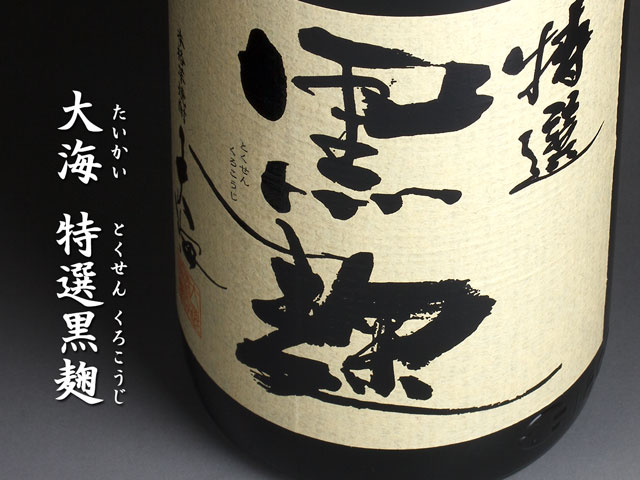 特選
黒麹
とくせん
くろこうじ
大海
大海 特選黒麹
たいかい とくせん くろこうじ